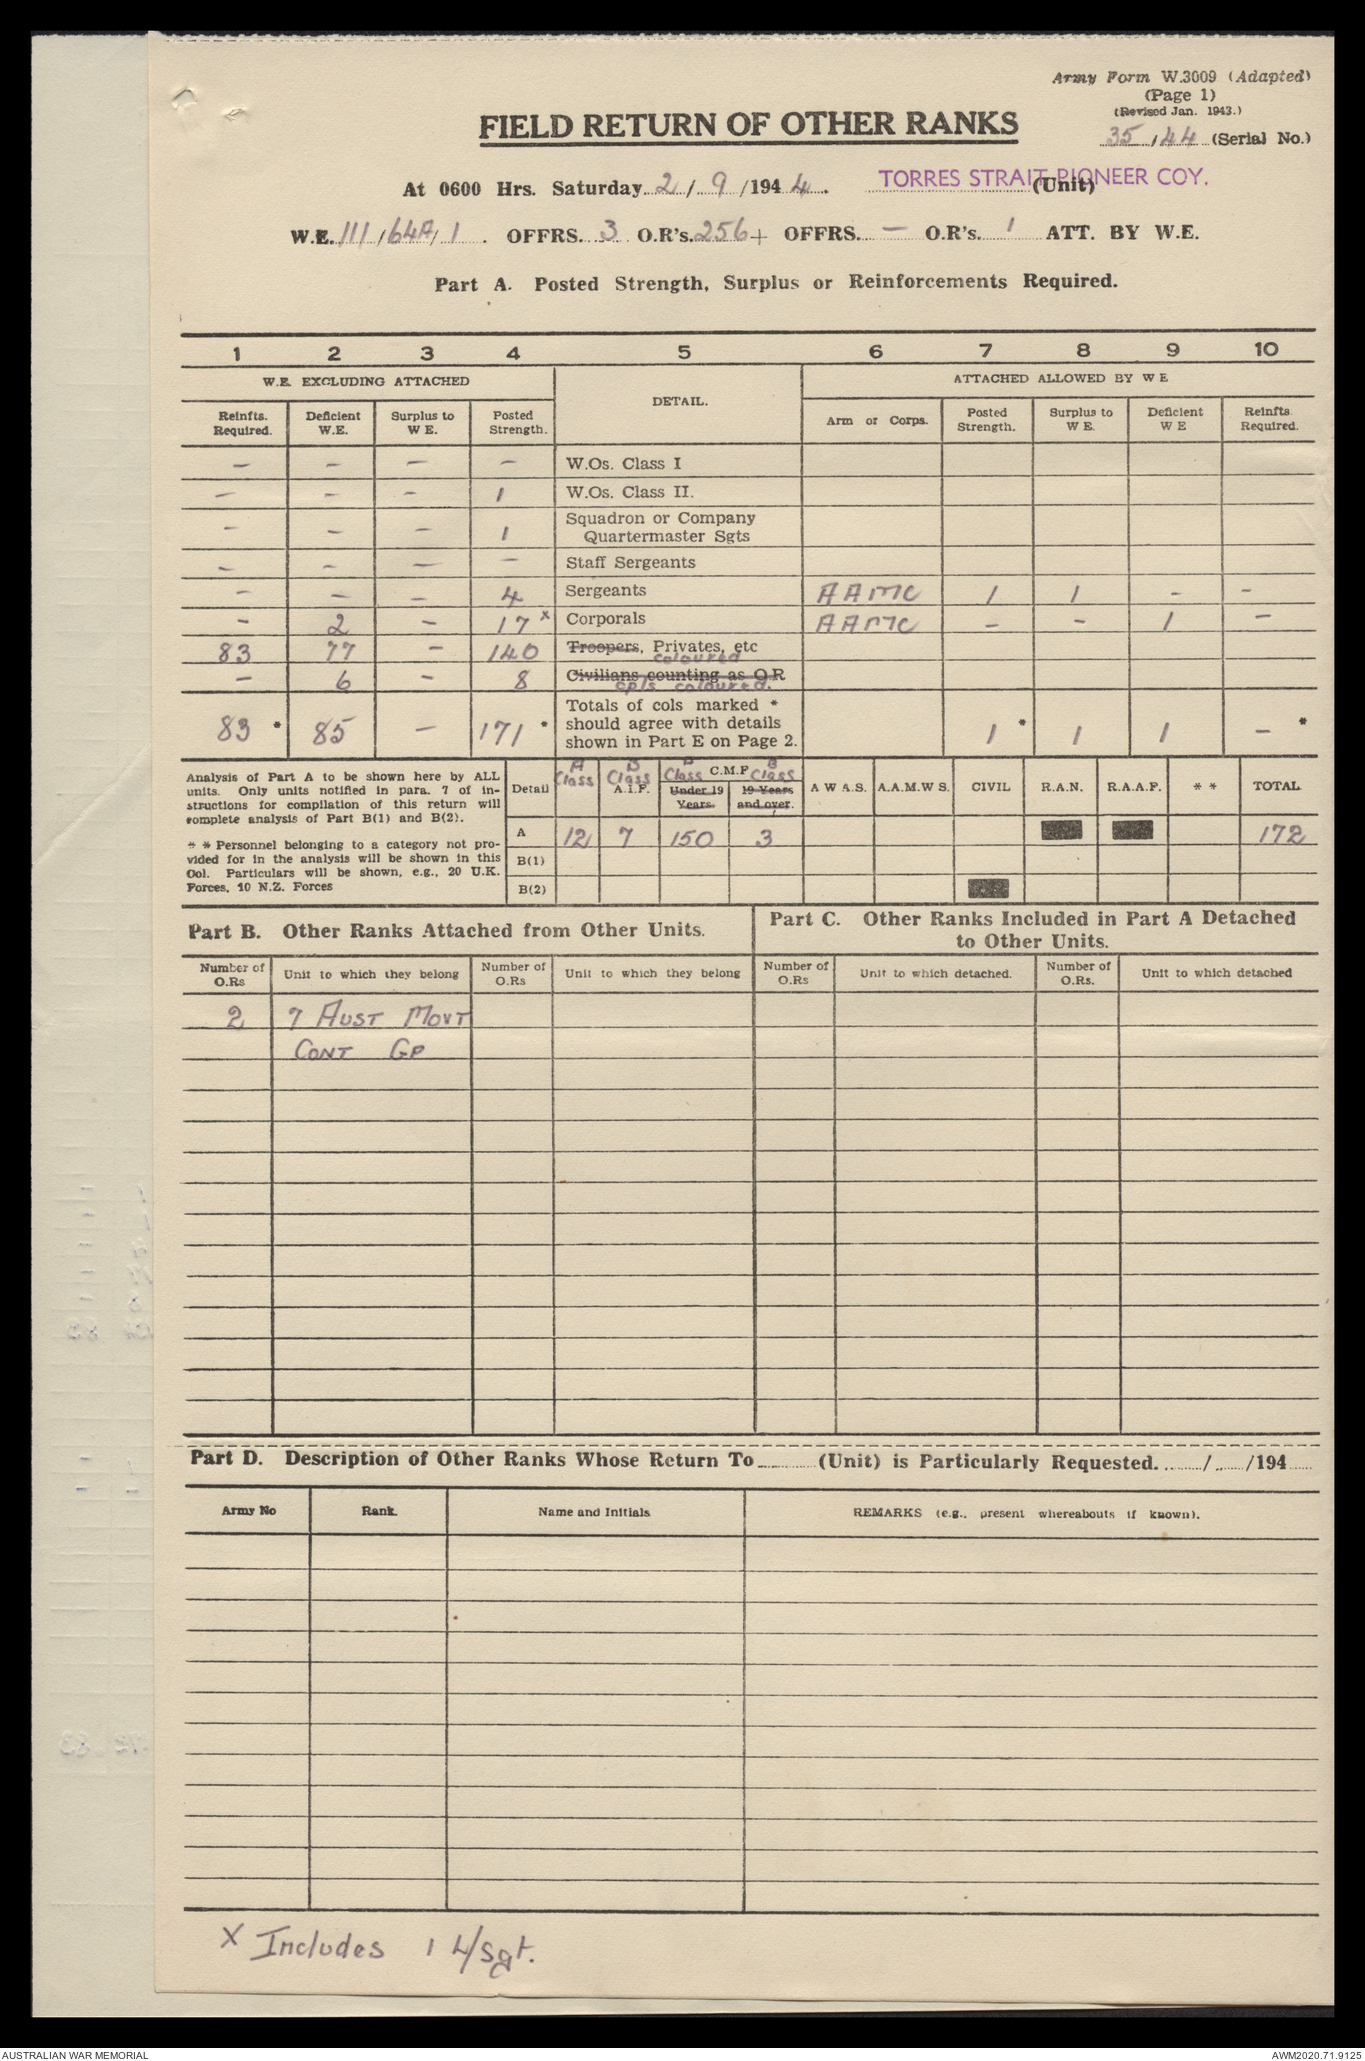 Army Form W.3009 (Adapted)
(Page 1)
(Revised Jan. 1943.)
FIELD RETURN OF OTHER RANKS
35/44 (Serial No.)
At 0600 Hrs. Saturday 2/9/1944. TORRES STRAIT PIONEER COY. (Unit)
W.E. 111/64A/1. OFFRS. 3 O.R's. 256 + OFFRS. — O.R's. 1 ATT. BY W.E.
Part A. Posted Strength, Surplus or Reinforcements Required.
1 2 3 4 5 6 7 8 9 10
W.E. EXCLUDING ATTACHED DETAIL. ATTACHED ALLOWED BY W E
Reinfts. Required. Deficient W.E. Surplus to W E. Posted Strength. Arm or Corps. Posted Strength. Surplus to W E. Deficient W E Reinfts. Required.
— — — — W.Os. Class I
— — — 1 W.Os. Class II.
— — — 1 Squadron or Company Quartermaster Sgts
— — — — Staff Sergeants
— — — 4 Sergeants AAMC 1 1 — —
— 2 — 17 x Corporals AAMC — — 1 —
83 77 — 140 Troopers, Privates, etc coloured
— 6 — 8 Civilians counting as O R cpls coloured.
83 * 85 — 171 * Totals of cols marked * should agree with details shown in Part E on Page 2. 1 * 1 1 — *
Analysis of Part A to be shown here by ALL units. Only units notified in para. 7 of instructions for compilation of this return will complete analysis of Part B(1) and B(2).
* * Personnel belonging to a category not provided for in the analysis will be shown in this Col. Particulars will be shown, e.g., 20 U.K. Forces, 10 N.Z. Forces
Detail A Class B Class A.I.F. Class C.M.F. B Class Under 19 Years. 19 Years and over. A W A S. A.A.M.W S. CIVIL R.A.N. R.A.A.F. * * TOTAL
A 12 7 150 3 172
B(1)
B(2)
Part B. Other Ranks Attached from Other Units.
Part C. Other Ranks Included in Part A Detached to Other Units.
Number of O.Rs Unit to which they belong Number of O.Rs Unit to which they belong Number of O.Rs Unit to which detached. Number of O.Rs. Unit to which detached
2 7 AUST MOVT
CONT GP
Part D. Description of Other Ranks Whose Return To ........ (Unit) is Particularly Requested. ..../..../194....
Army No Rank. Name and Initials REMARKS (e.g., present whereabouts if known).
X Includes 1 L/Sgt.
AUSTRALIAN WAR MEMORIAL AWM2020.71.9125